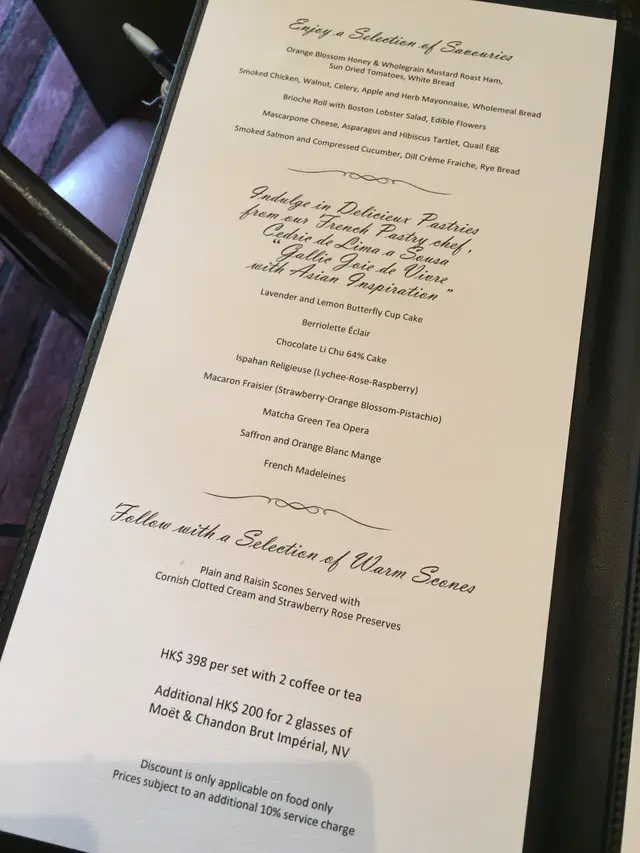 Enjoy a Selection of Savouries
Orange Blossom Honey & Wholegrain Mustard Roast Ham,
Sun Dried Tomatoes, White Bread
Smoked Chicken, Walnut, Celery, Apple and Herb Mayonnaise, Wholemeal Bread
Brioche Roll with Boston Lobster Salad, Edible Flowers
Mascarpone Cheese, Asparagus and Hibiscus Tartlet, Quail Egg
Smoked Salmon and Compressed Cucumber, Dill Crème Fraiche, Rye Bread
Indulge in Delicieux Pastries
from our French Pastry chef,
Cedric de Lima a Sousa
“Gallic Joie de Vivre
with Asian Inspiration”
Lavender and Lemon Butterfly Cup Cake
Berriolette Éclair
Chocolate Li Chu 64% Cake
Ispahan Religieuse (Lychee-Rose-Raspberry)
Macaron Fraisier (Strawberry-Orange Blossom-Pistachio)
Matcha Green Tea Opera
Saffron and Orange Blanc Mange
French Madeleines
Follow with a Selection of Warm Scones
Plain and Raisin Scones Served with
Cornish Clotted Cream and Strawberry Rose Preserves
HK$ 398 per set with 2 coffee or tea
Additional HK$ 200 for 2 glasses of
Moët & Chandon Brut Impérial, NV
Discount is only applicable on food only
Prices subject to an additional 10% service charge